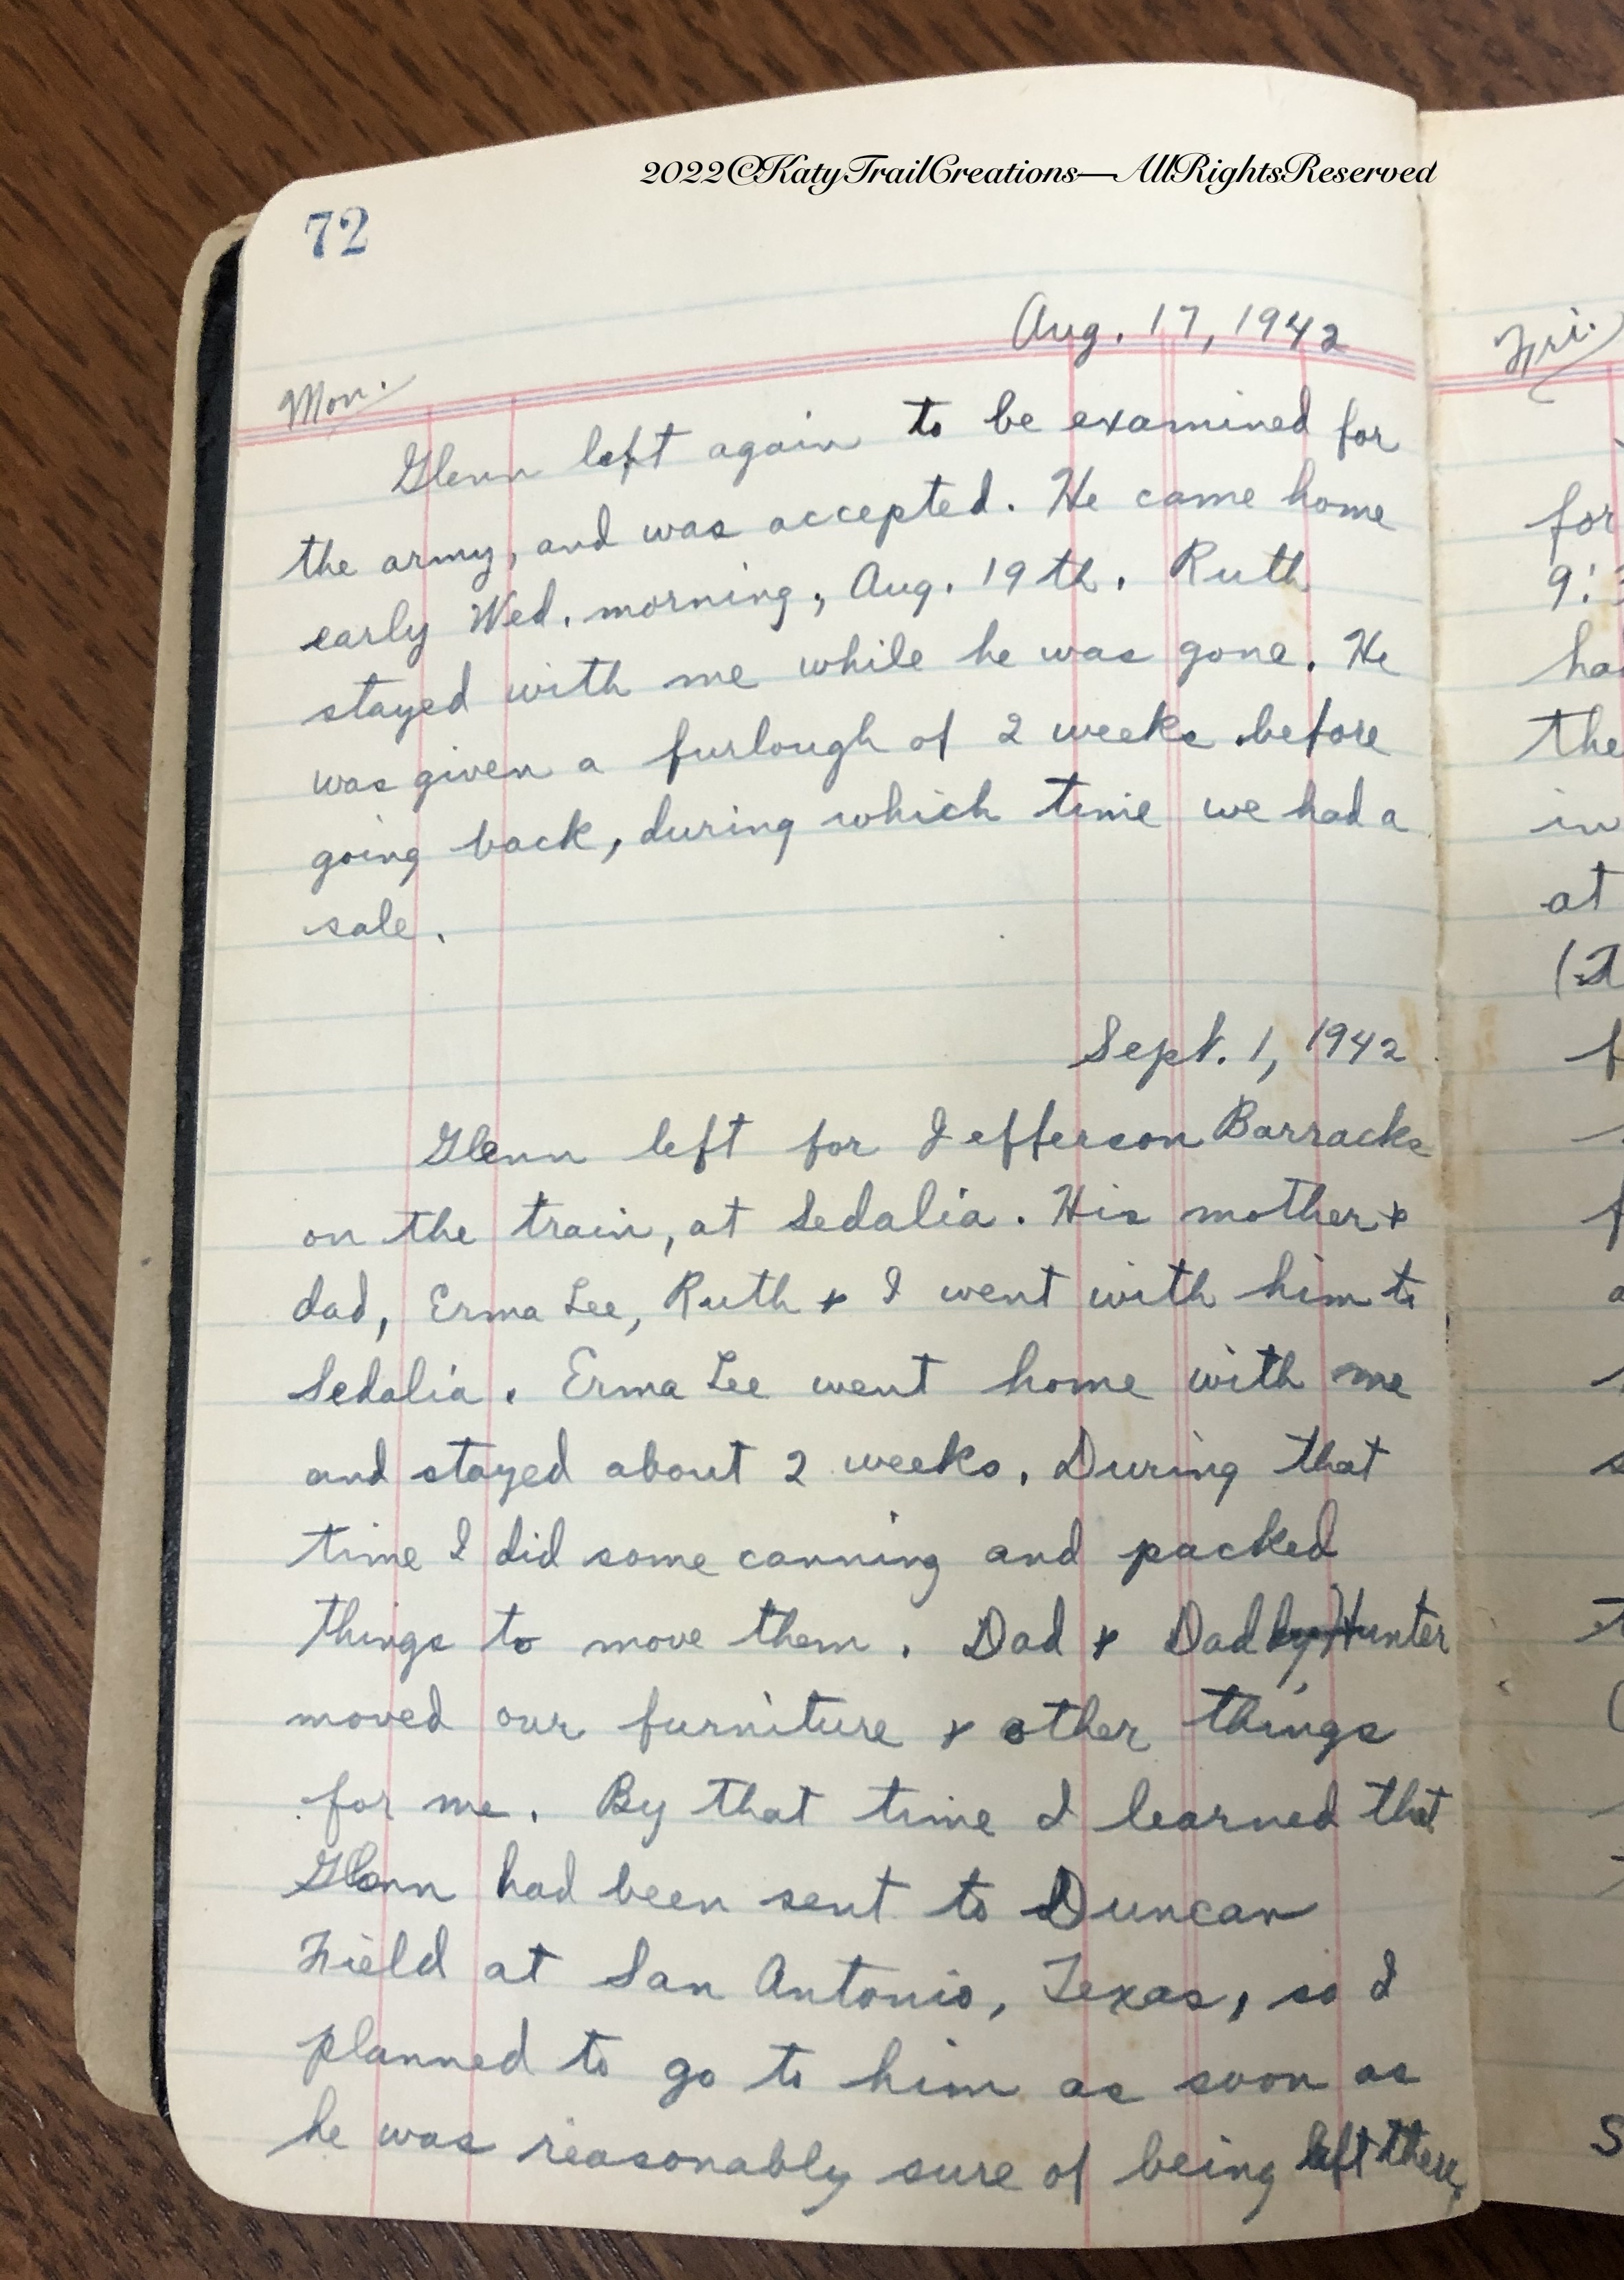 2022©KatyTrailCreations—AllRightsReserved
72
Aug. 17, 1942
Mon.
Glenn left again to be examined for
the army, and was accepted. He came home
early Wed. morning, Aug. 19th. Ruth
stayed with me while he was gone. He
was given a furlough of 2 weeks before
going back, during which time we had a
sale.
Sept. 1, 1942
Glenn left for Jefferson Barracks
on the train, at Sedalia. His mother &
dad, Erma Lee, Ruth & I went with him to
Sedalia. Erma Lee went home with me
and stayed about 2 weeks. During that
time I did some canning and packed
things to move them. Dad & Daddy Hunter
moved our furniture & other things
for me. By that time I learned that
Glenn had been sent to Duncan
Field at San Antonio, Texas, so I
planned to go to him as soon as
he was reasonably sure of being left there.
Fri.
for
9:
the
in
at